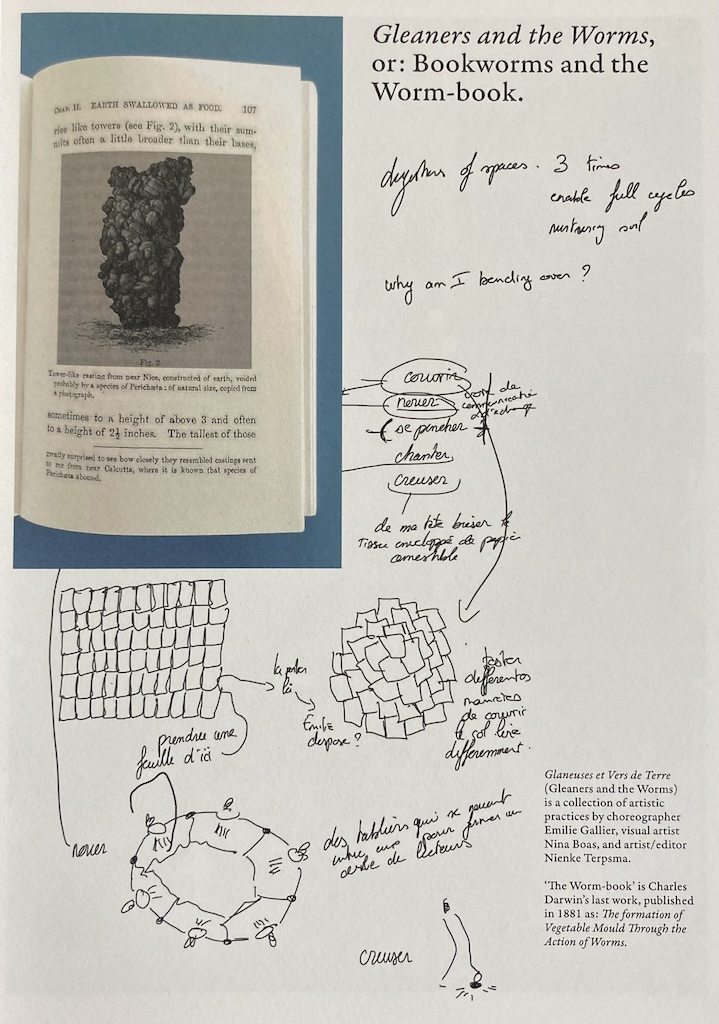 Gleaners and the Worms,
or: Bookworms and the
Worm-book.
CHAP. II. EARTH SWALLOWED AS FOOD. 107
rise like towers (see Fig. 2), with their sum-
mits often a little broader than their bases,
Fig. 2
Tower-like casting from near Nice, constructed of earth, voided
probably by a species of Perichæta: of natural size, copied from
a photograph.
sometimes to a height of above 3 and often
to a height of 2½ inches. The tallest of those
greatly surprised to see how closely they resembled castings sent
to me from near Calcutta, where it is known that species of
Perichæta abound.
of spaces. 3 times
enable full cycles
nurturing soil
why am I bending over?
couvrir
nouer
se pencher
chanter
creuser
de ma tête briser le
tissu enveloppé de papier
comestible
prendre une
feuille d'ici
Emilie
dispose?
tester
differentes
manieres
de couvrir
le sol lire
differemment.
nouer
des tabliers qui se nouent
entre eux pour former un
cercle de lecteurs
creuser
Glaneuses et Vers de Terre
(Gleaners and the Worms)
is a collection of artistic
practices by choreographer
Emilie Gallier, visual artist
Nina Boas, and artist/editor
Nienke Terpsma.
'The Worm-book' is Charles
Darwin's last work, published
in 1881 as: The formation of
Vegetable Mould Through the
Action of Worms.